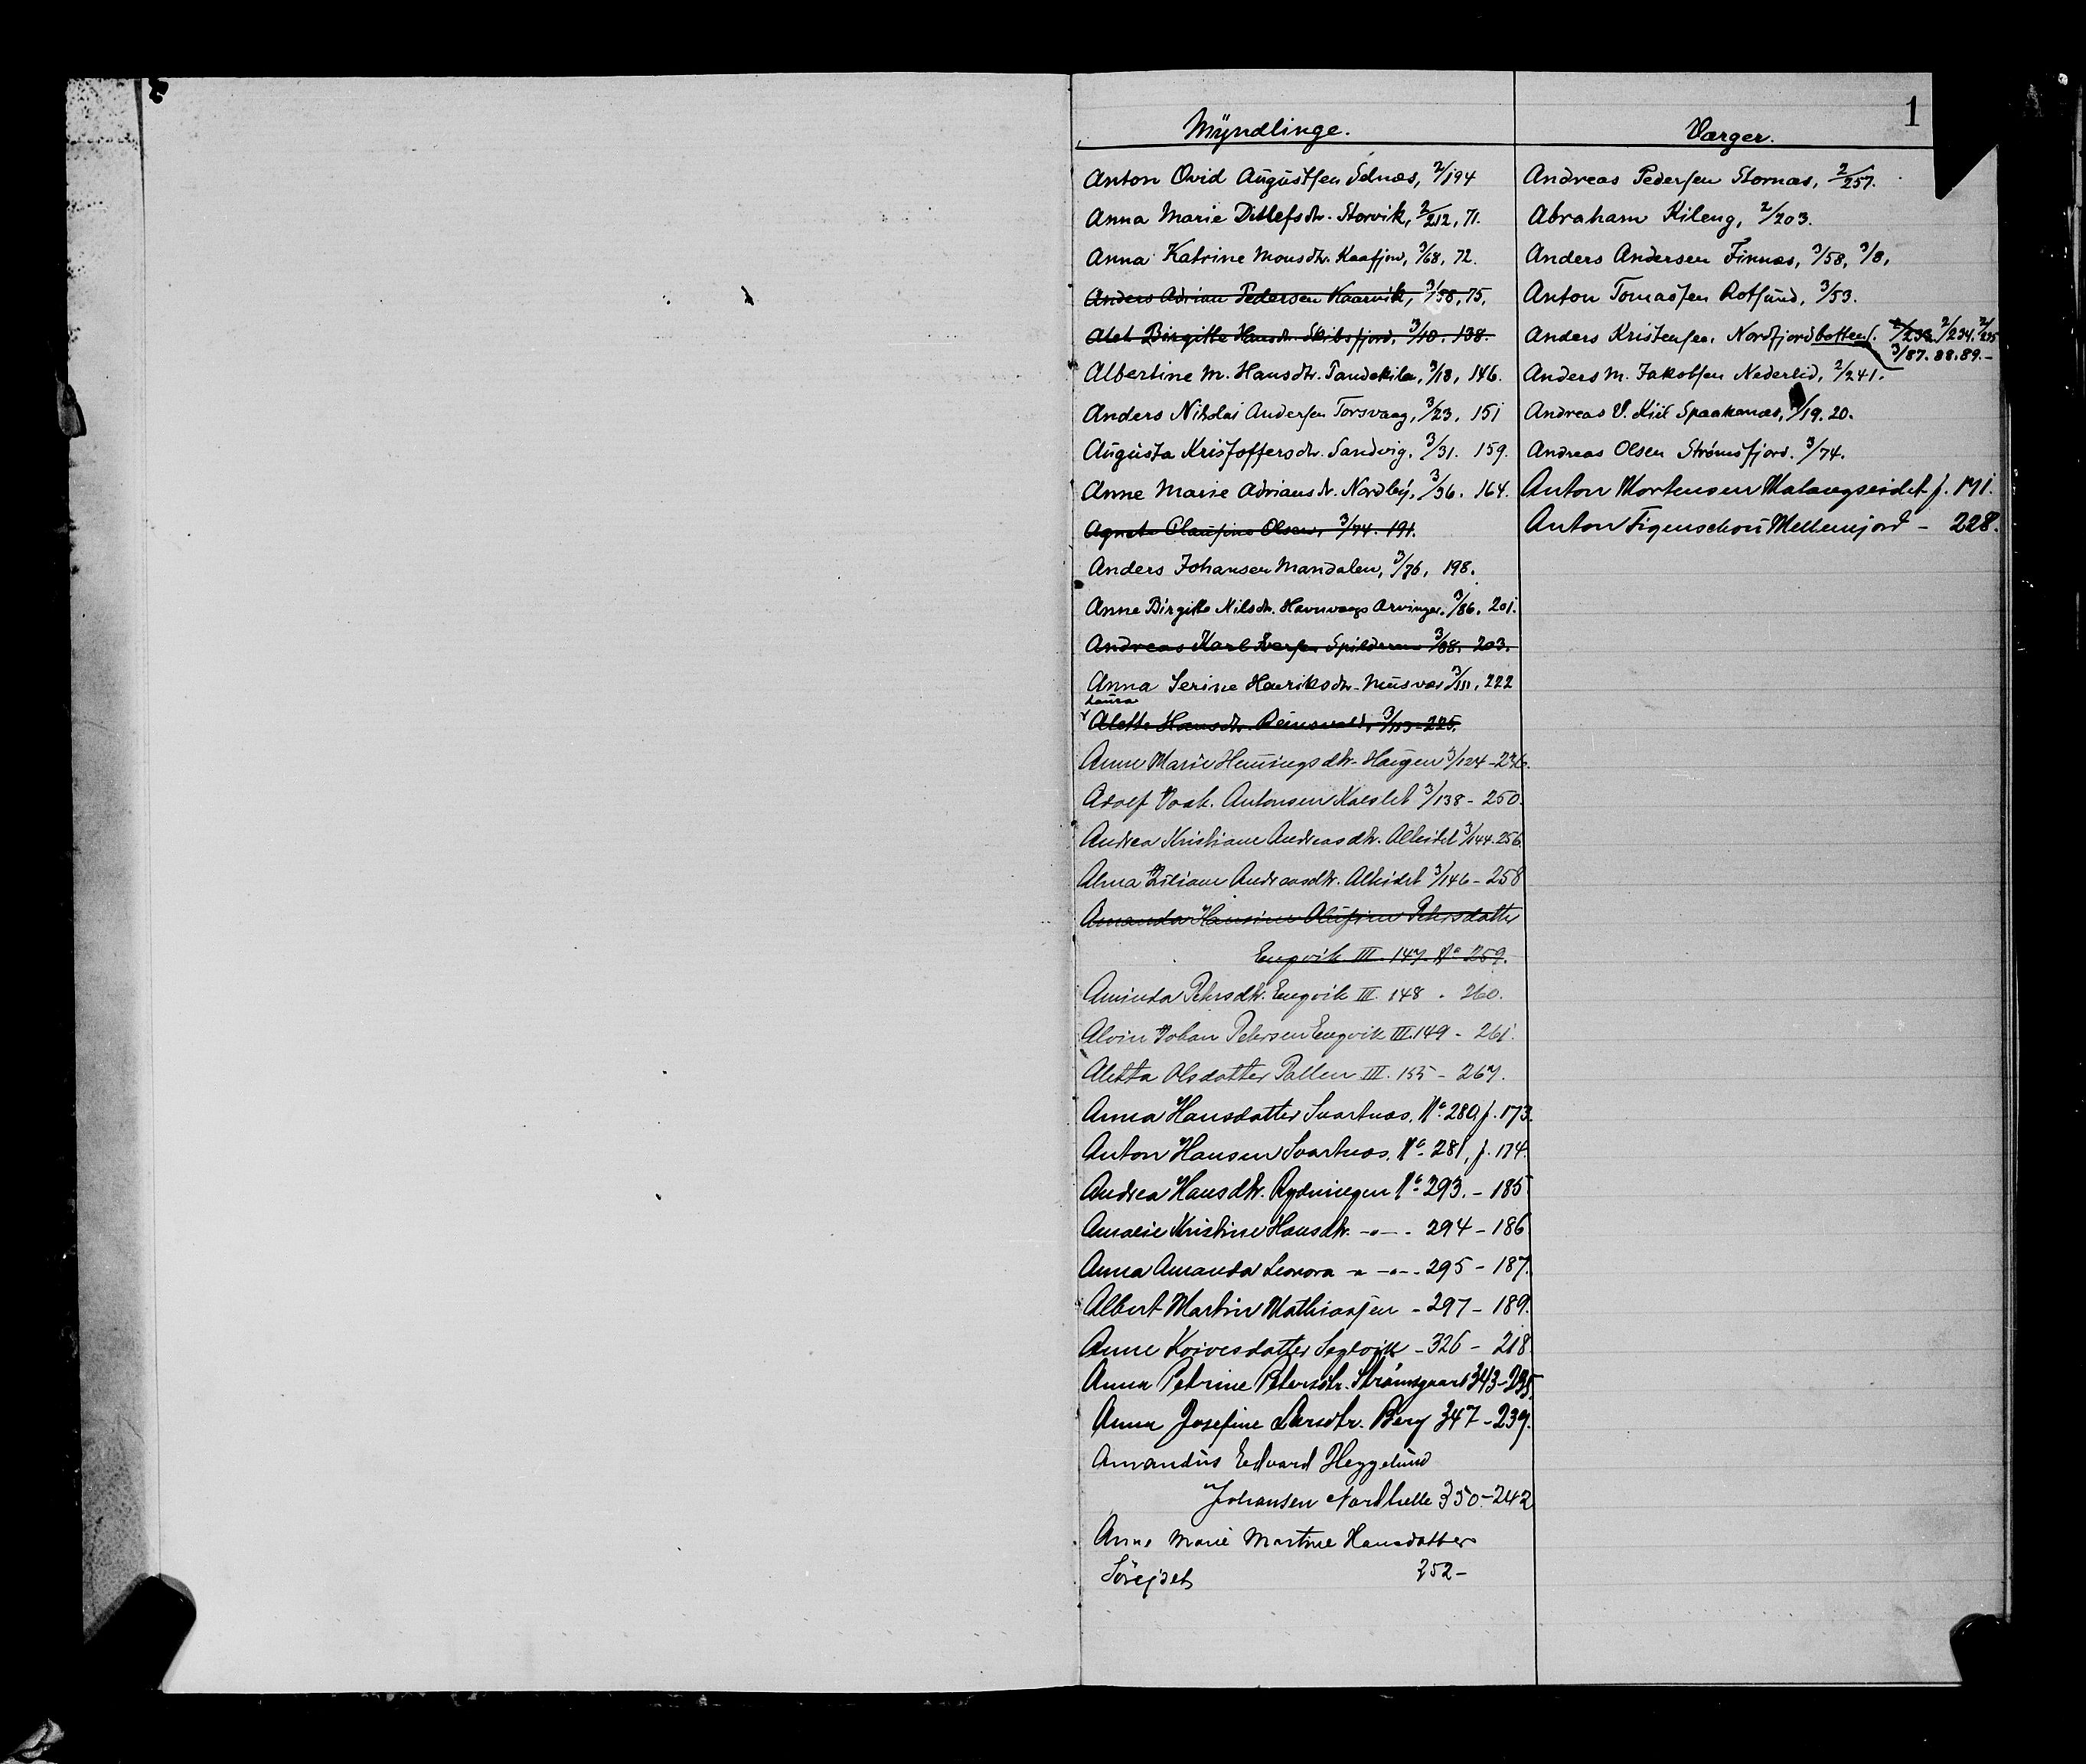 1
Myndlinge.
Anton Ovid Augustsen Selnæs, 2/194
Anna Marie Ditlefsdtr. Storvik, 2/212, 71.
Anna Katrine Monsdtr. Kaafjord, 3/68, 72.
Anders Adrian Pedersen Kaarvik, 3/58, 75.
Alet Birgitte Hansdtr. Skibsfjord, 3/10. 138.
Albertine M. Hansdtr. 3/18, 146.
Anders Nikolai Andersen Torsvaag, 3/23, 151
Augusta Kristoffersdtr. Sandvig, 3/31. 159.
Anne Marie Adriansdtr. Nordby, 3/36. 164.
Agnete Olaufine Olsen, 3/74. 191.
Anders Johansen Mandalen, 3/76, 198.
Anne Birgitte Nilsdtr. Havnvaags Arvinger. 3/86. 201.
Andreas Karl Iversen Spilderen 3/88. 203.
Anna Serine Henriksdtr. Musvær 3/111, 222
Laura
Alette Hansdtr. Reinsvold, 3/113-225.
Anne Marie Henningsdtr. Haugen 3/124-236.
Adolf Joak. Antonsen 3/138 - 250.
Andrea Kristiane Andreasdtr. Alteidet 3/144.256.
Alma Juliane Andreasdtr. Alteidet 3/146 - 258
Amanda Hansine Olufine Petersdatter
Engvik III. 147. No 259.
Aminda Petersdtr. Engvik III. 148 - 260.
Alvin Johan Petersen Engvik III. 149 - 261.
Aletta Olsdatter Pollen III. 155 - 267.
Anna Hansdatter Svartnæs. No. 280, f. 173.
Anton Hansen Svartnæs. No. 281, f. 174.
Andrea Hansdtr. Rydningen No. 293. - 185
Amalie Kristine Hansdtr. -"- - 294 - 186
Anna Amanda Leonora -"- -"- - 295 - 187.
Albert Martin Mathiassen - 297 - 189.
Anne Koivesdatter Seglvik - 326 - 218.
Anna Petrine Petersdtr. Strømsgaard 343-235.
Anna Josefine Larsdtr. Berg 347 - 239.
Amandus Edvard Heggelund
Johansen Nordhelle 350.-242
Anna Marie Martine Hansdatter
Sörejdet 252-
Værger.
Andreas Pedersen Stornæs, 2/257.
Abraham Kileng, 2/203.
Anders Andersen Finnæs, 3/58, 3/8,
Anton Tomassen Rotsund, 3/53.
Anders Kristensen, Nordfjordbotten. 2/233, 2/234. 2/235
3/87. 88. 89. -
Anders M. Jakobsen Nederlid, 2/241.
Andreas U. Kiil Spaakenæs, 3/19. 20.
Andreas Olsen Strømsfjord. 3/74.
Anton Mortensen Malangseidet f. 171.
Anton Figenschou Mellemjord - 228.